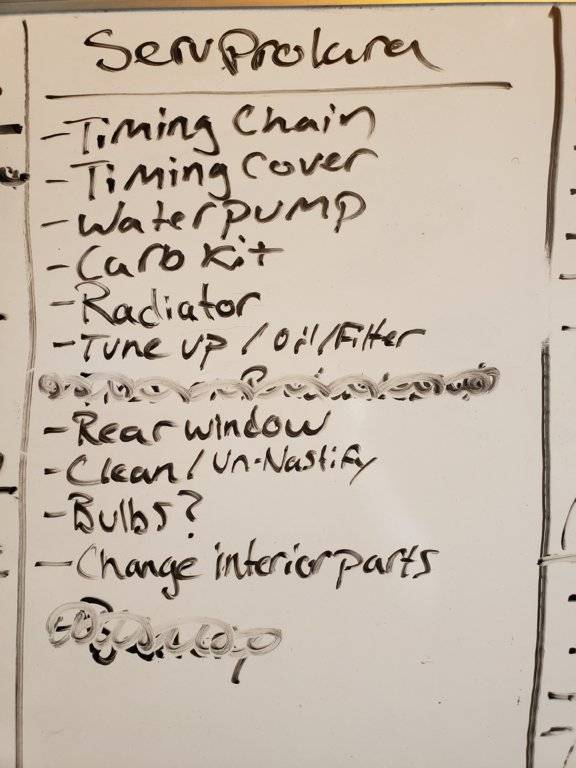 ServProlara
-Timing Chain
-Timing Cover
-Waterpump
-Carb Kit
-Radiator
-Tune up / Oil/Filter
-Rear window
-Clean / Un-Nastify
-Bulbs?
-Change interior parts